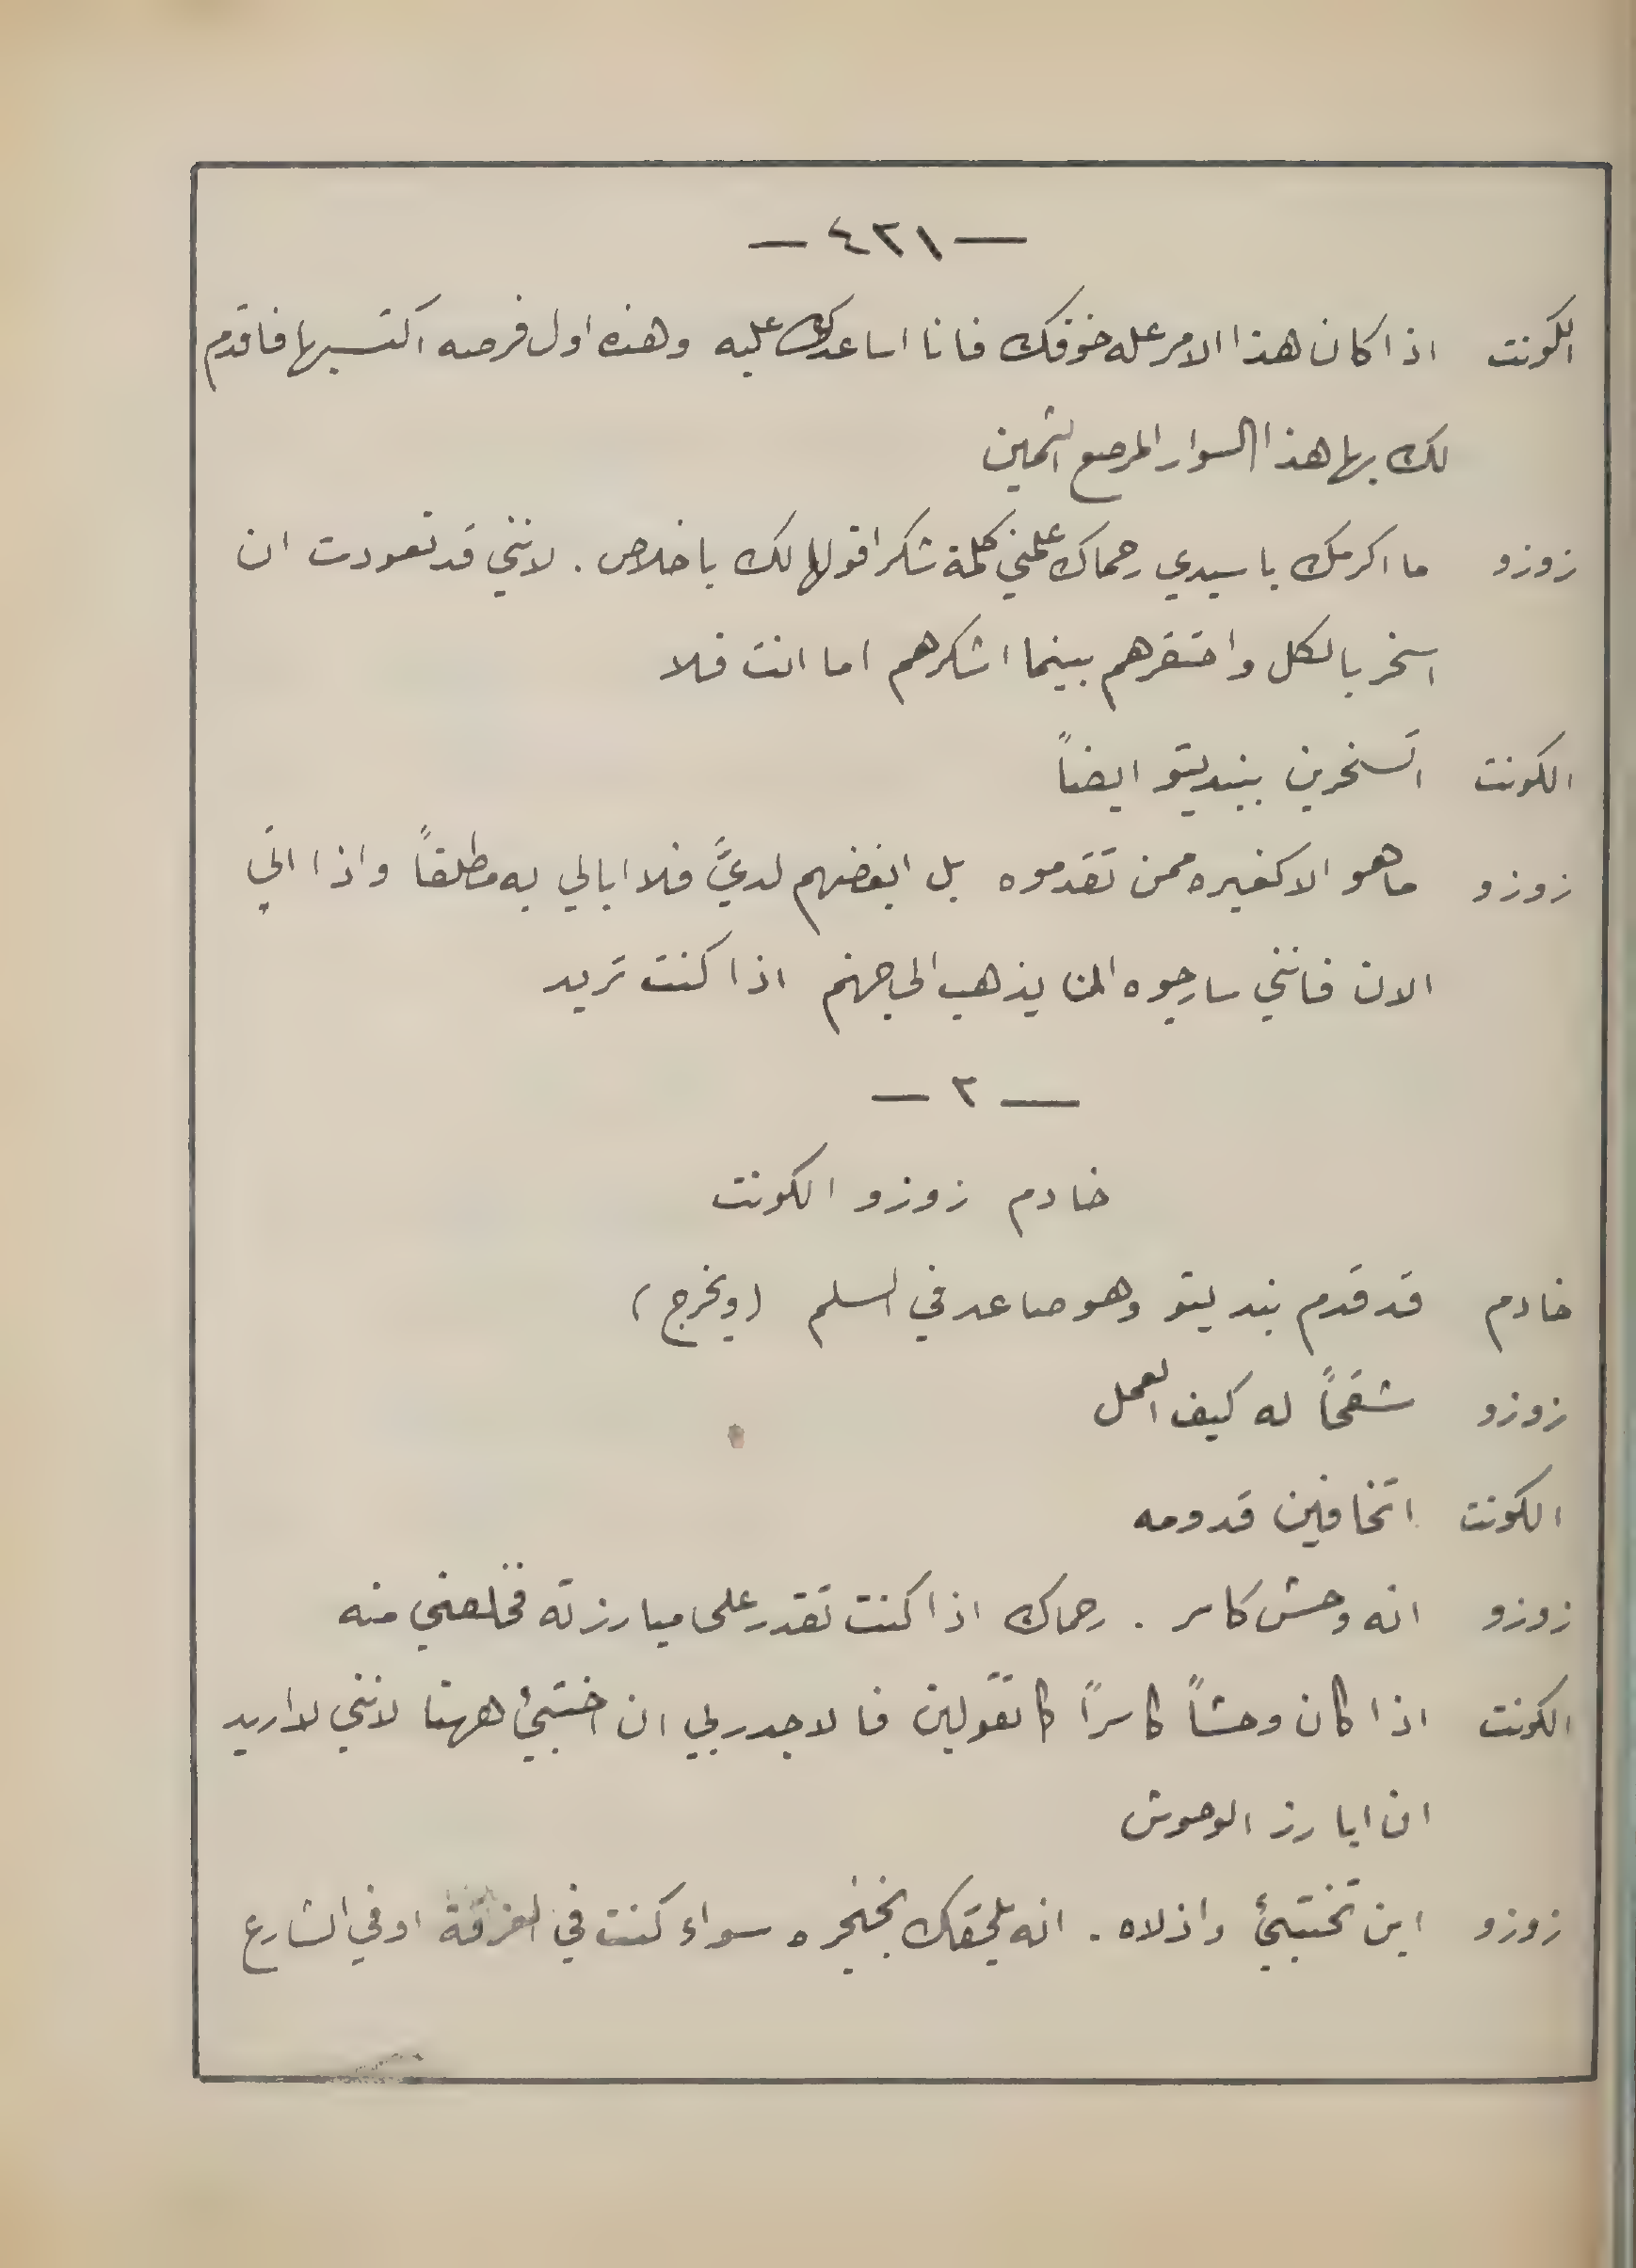 — ٤٢١ —
الكونت اذا كان هذا الامر علة خوفك فانا اساعدك عليه وهذه اول فرصه اكتسبها فاقدم
لك بها هذا السوار المرصع الثمين
زوزو ما اكرمك يا سيدي رحماك علمني كلمة شكر اقولها لك باخلاص . لانني قد تعودت ان
اسخر بالكل واحتقرهم بينما اشكرهم اما انت فلا
الكونت اتسخرين ببنديتو ايضاً
زوزو ما هو الا كغيره ممن تقدموه بل ابغضهم لديَّ فلا ابالي به مطلقاً واذا اتى
الان فانني سارجوه ان يذهب الى جهنم اذا كنت تريد
— ٢ —
خادم زوزو الكونت
خادم قد قدم بنديتو وهو صاعد في السلم (ويخرج)
زوزو شقحاً له كيف العمل
الكونت اتخافين قدومه
زوزو انه وحش كاسر . رحماك اذا كنت تقدر على مبارزته فخلصني منه
الكونت اذا كان وحشاً كاسراً كما تقولين فالاجدر بي ان اختبئ ههنا لانني لا اريد
ان ابارز الوحوش
زوزو اين تختبئ واذلاه . انه يلحقك بخنجره سواء كنت في الغرفة او في الشارع